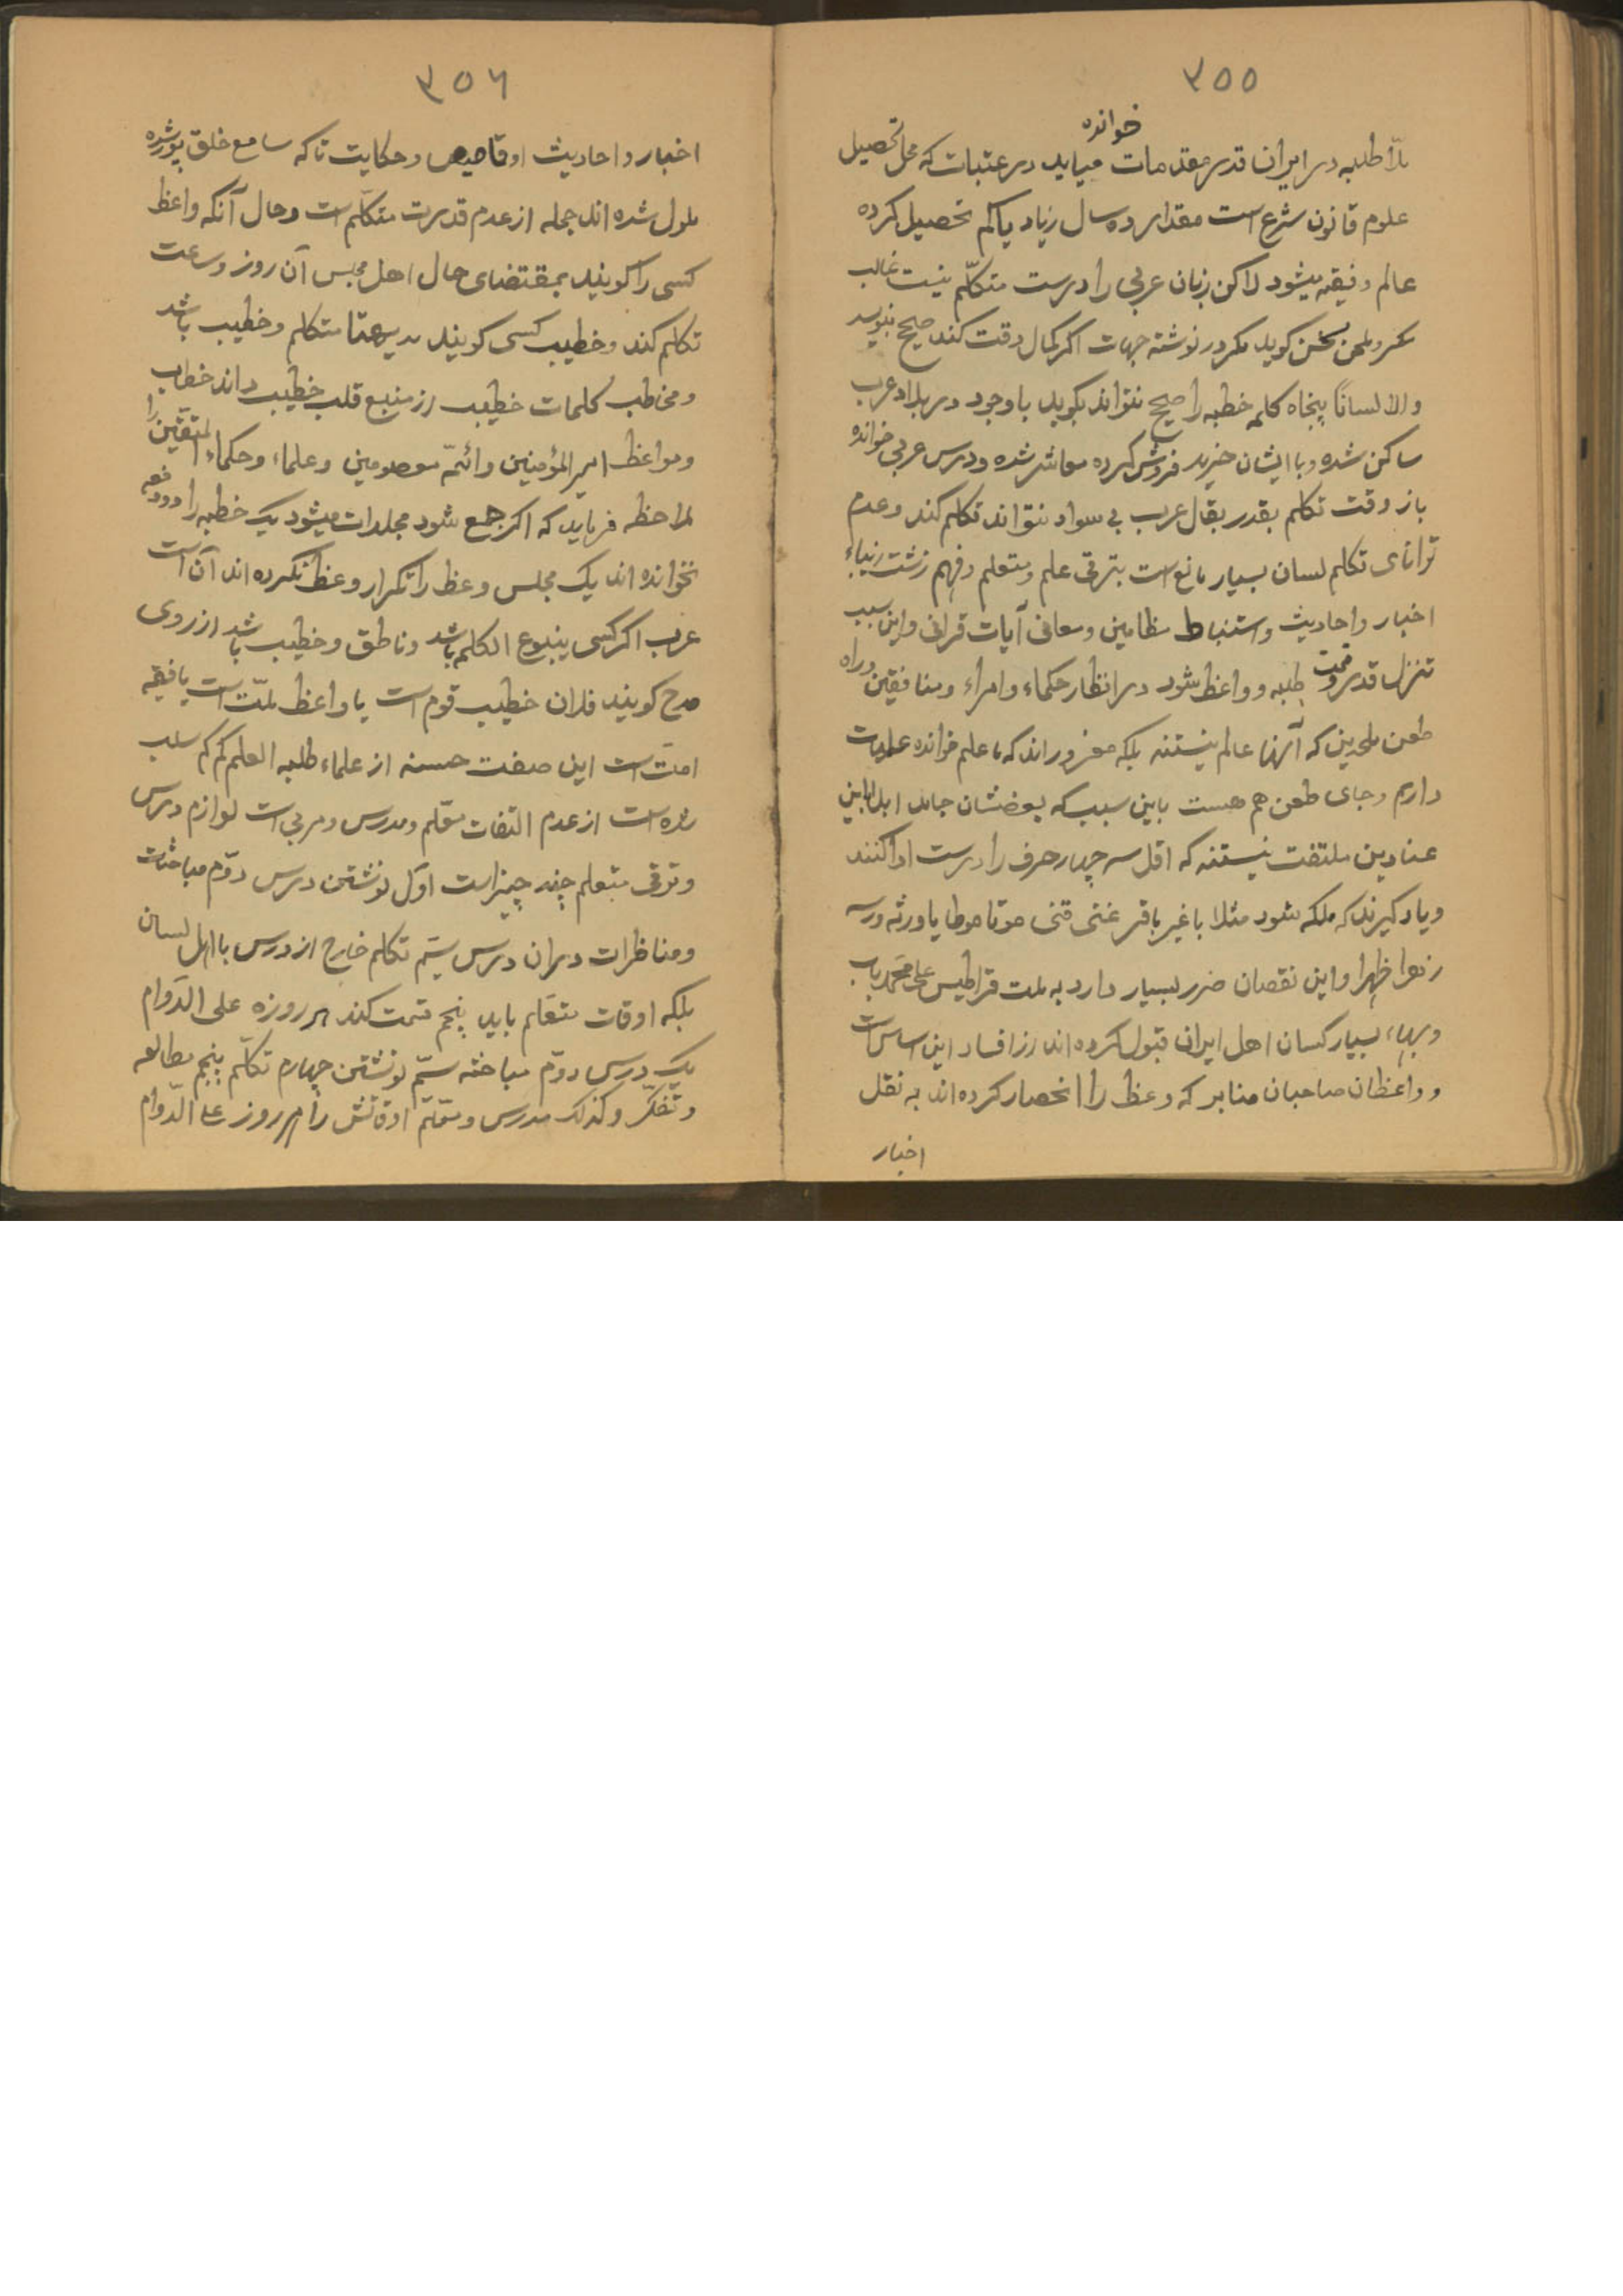 ۳۵۵
خوانده
طلبه در ایران قدر مقدمات میاید در عتبات که محل تحصیل
علوم قانون شرع است مقدار ده سال زیاد یا کم تحصیل کرده
عالم و فیقه میشود لاکن زبان عربی را درست متکلّم نیست غالب
سخن کوید مکر در نوشته جهات اکر کمال دقت کند صحیح بنویسد
والا لسانًا پنجاه کلمه خطبه را صحیح نتواند بکوید با وجود در بلاد عرب
ساکن شده و با ایشان خرید فروش کرده معاشر شده و درس عربی خوانده
باز وقت تکلم بقدر بقال عرب بی سواد نتواند تکلم کند و عدم
توانای تکلم لسان بسیار مانع است بترقی علم و متعلم و فهم زشت زیباء
اخبار و احادیث و استنباط مظامین و معانی آیات قرانی و این سبب
تنزل قدر وقیمت طلبه و واعظ شود در انظار حکماء و امراء و منافقین و راه
طعن ملحدین که آنها عالم نیستند بلکه مغرور اند که ما علم خوانده علمیات
داریم و جای طعن هم هست باین سبب که بعضشان جاهل
عنادین ملتفت نیستند که اقل سه چهار حرف را درست ادا کنند
و یاد کیرند که ملکه شود مثلا با غیر باقر غنی قنی موتا موطا یا ورثه ورسه
زهرا ظهرا و این نقصان ضرر بسیار دارد به ملت قراطیس علی محمّد باب
و بهاء بسیار کسان اهل ایران قبول کرده اند از افساد این اساس است
و واعظان صاحبان منابر که وعظ را انحصار کرده اند به نقل
اخبار
۳۵۶
اخبار و احادیث او قاصیص و حکایت تا که سامع خلق پور شده
ملول شده اند جمله از عدم قدرت متکلّم است و حال آنکه واعظ
کسی را کویند بمقتضای حال اهل مجلس آن روز و ساعت
تکلم کند و خطیب کسی کویند بدیهتا متکلم و خطیب باشد
و مخاطب کلمات خطیب از منبع قلب خطیب داند خطاب
و مواعظ امیر المؤمنین و ائمّه معصومین و علماء و حکماء المتقین را
ملاحظه فرماید که اکر جمع شود مجلدات میشود یک خطبه را دو دفعه
نخوانده اند یک مجلس وعظ را تکرار وعظ نکرده اند آن است
عرب اکر کسی ینبوع الکلم باشد و ناطق و خطیب باشد از روی
مدح کویند فلان خطیب قوم است یا واعظ ملّت است یا فقیه
امّت است این صفت حسنه از علماء طلبه العلم کم کم سلب
شده است از عدم التفات معّلم و مدرس و مربی است لوازم درس
و ترقی متعلم چند چیز است اوّل نوشتن درس دوّم مباحثات
و مناظرات در ان درس سیّم تکلم خارج از درس با اهل لسان
بلکه اوقات متعّلم باید پنجم قسمت کند هر روزه علی الدّوام
یک درس دوّم مباحثه سیّم نوشتن چهارم تکلّم پنجم مطالعه
و تفکّر و کذلک مدرس و معّلم اوقاتش را هر روز علی الدّوام